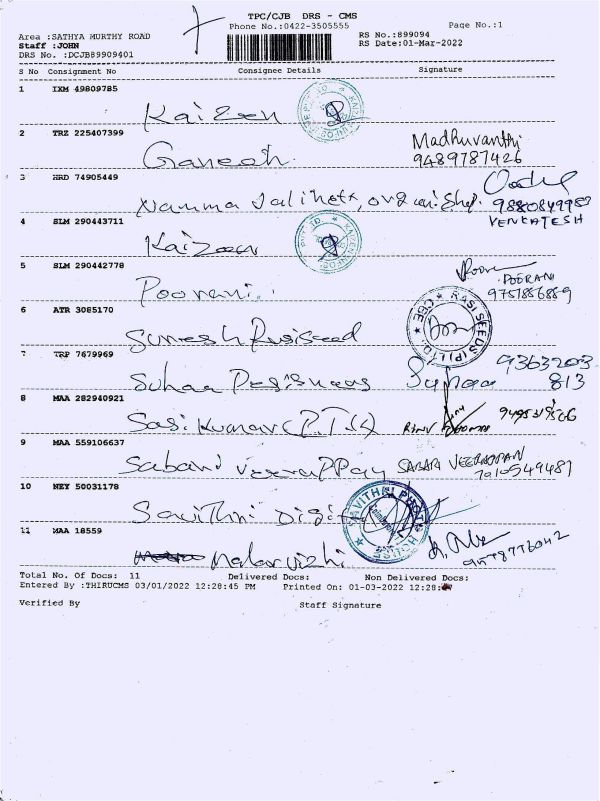 TPC/CJB DRS - CMS
Phone No.:0422-3505555
Page No.:1
Area :SATHYA MURTHY ROAD
RS No.:899094
Staff :JOHN
RS Date:01-Mar-2022
DRS No. :DCJBB9909401
S No Consignment No Consignee Details Signature
1 IXM 49809785
Kaizen
2 TRZ 225407399
Ganesh.
Madhuvanthi
9489787426
3 HRD 74905449
Namma
9880849983
VENKATESH
4 SLM 290443711
Kaizen
5 SLM 290442778
Poorani
POORANI
9751856889
6 ATR 3085170
Suresh Rasiseed
RASI SEEDS (P) LTD., CBE
7 TRP 7679969
Suhaa Designers
Suhaa
9363203
813
8 MAA 282940921
Sasi Kumar (P.T.S)
9 MAA 559106637
Sabari Veerappan
SABARI VEERAPPAN
7010549487
10 NEY 50031178
Savithri Digi
SAVITHRI PHOTO HOUSE
11 MAA 18559
Malarvizhi
9578776042
Total No. Of Docs: 11 Delivered Docs: Non Delivered Docs:
Entered By :THIRUCMS 03/01/2022 12:28:45 PM Printed On: 01-03-2022 12:28:
Verified By Staff Signature